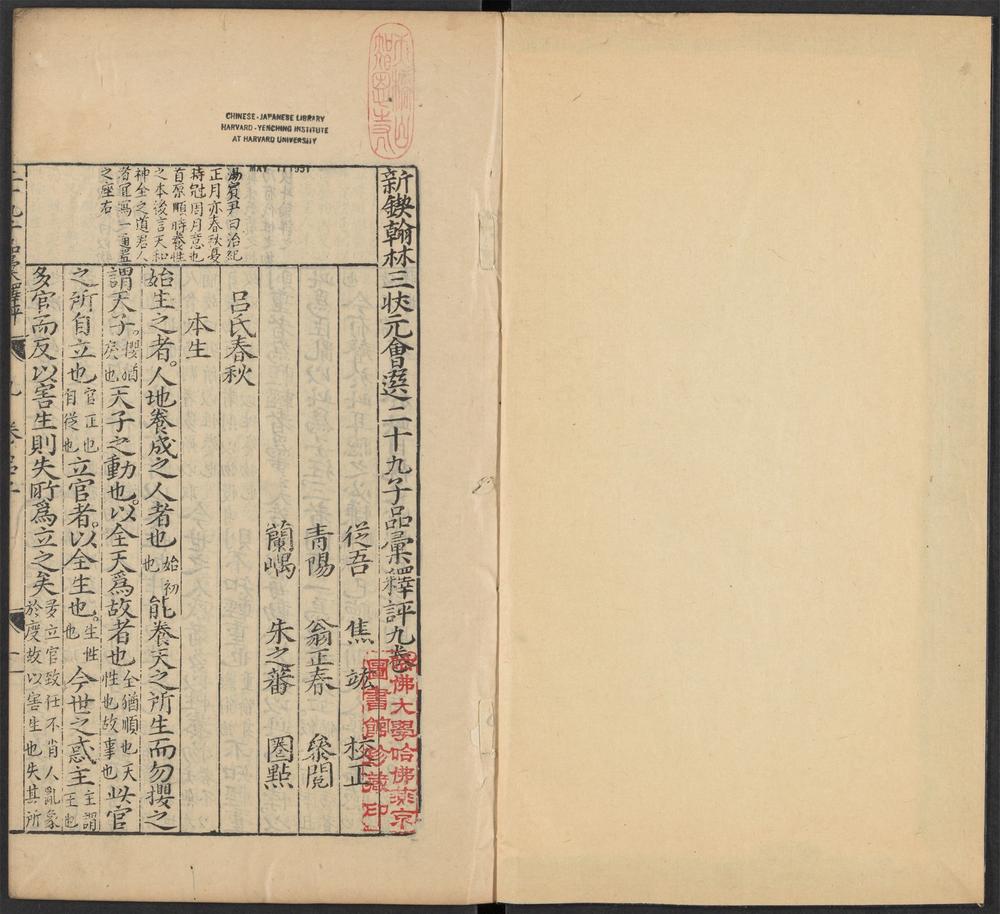 CHINESE-JAPANESE LIBRARY
HARVARD-YENCHING INSTITUTE
AT HARVARD UNIVERSITY
MAY 11 1951
新鍥翰林三狀元會選二十九子品彙釋評九卷
從吾 焦竑 校正
青陽 翁正春 叅閱
蘭嵎 朱之蕃 圈點
哈佛大學哈佛燕京
圖書館珍藏印
呂氏春秋
本生
始生之者。人地養成之人者也始初也能養天之所生而勿攖之
謂天子。攖猶戾也天子之動也。以全天爲故者也全猶順也天性也故事也此官
之所自立也官正也自從也立官者。以全生也。生性也今世之惑主主謂王也
多官而反以害生則失所爲立之矣多立官致任不肖人亂象於度故以害生也失其所
湯賓尹曰治紀
正月亦春秋夏
時冠周月意也
首原順時養性
之本後言天和
神全之道君人
者宜寫一通置
之座右